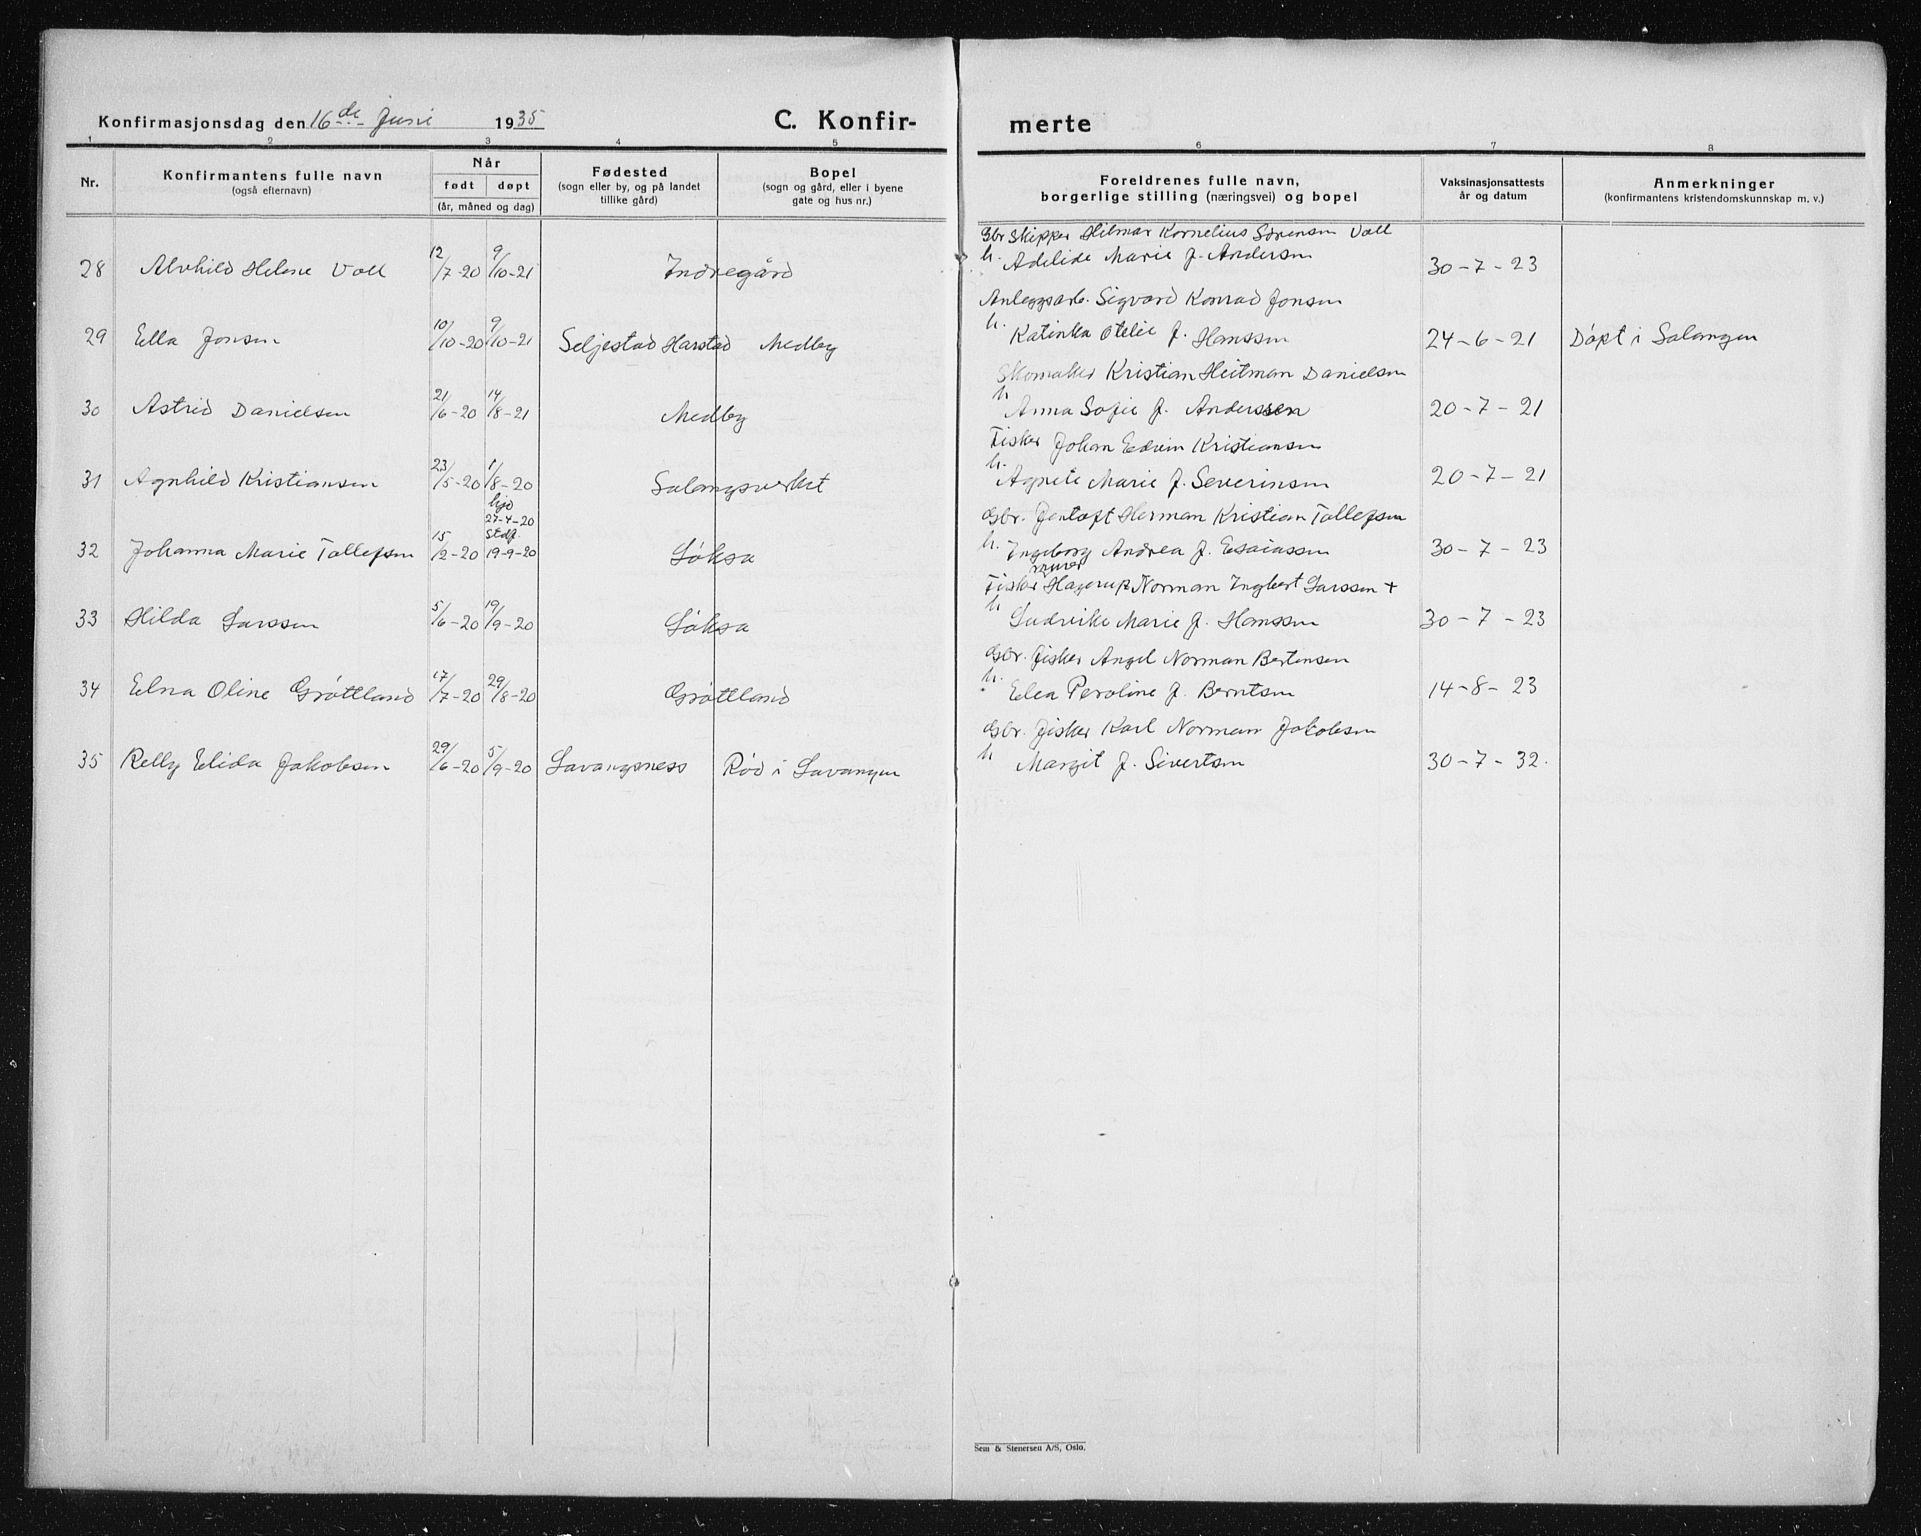 Konfirmasjonsdag den 16de Juni 1935
C. Konfir-
merte
1 2 3 4 5
6 7 8
Nr.
Konfirmantens fulle navn
(også efternavn)
Når
født døpt
(år, måned og dag)
Fødested
(sogn eller by, og på landet
tillike gård)
Bopel
(sogn og gård, eller i byene
gate og hus nr.)
Foreldrenes fulle navn,
borgerlige stilling (næringsvei) og bopel
Vaksinasjonsattests
år og datum
Anmerkninger
(konfirmantens kristendomskunnskap m. v.)
Gbr Skipper Hilmar Kornelius Sørensen Voll
28 Alvhild Helene Voll 12/7-20 9/10-21 Indregård h. Adelide Marie f. Andersen 30-7-23
Anleggsarb. Sigvard Konrad Jonsen
29 Ella Jonsen 10/10-20 9/10-21 Seljestad Harstad Medby h. Katinka Otelie f. Hanssen 24-6-21 Døpt i Salangen
Skomaker Kristian Heitman Danielsen
30 Astrid Danielsen 21/6-20 14/8-21 Medby h. Anna Sofie f. Anderssen 20-7-21
Fisker Johan Edvin Kristiansen
31 Agnhild Kristiansen 23/5-20 1/8-20 Salangsverket h. Agnete Marie f. Severinsen 20-7-21
hjd
27-4-20
Gbr. Jentoft Herman Kristian Tollefsen
Stdf.
32 Johanna Marie Tollefsen 15/2-20 19-9-20 Løksa h. Ingeborg Andrea f. Esaiassen 30-7-23
murer
Fisker Hagerup Norman Ingbert Larssen +
33 Hilda Larssen 5/6-20 19/9-20 Løksa h. Ludvikke Marie f. Hanssen 30-7-23
Gbr. fisker Angel Norman Berntsen
34 Elna Oline Grøttland 17/7-20 29/8-20 Grøttland h. Elea Peroline f. Berntsen 14-8-23
Gbr. fisker Karl Norman Jakobsen
35 Relly Elida Jakobsen 29/6-20 5/9-20 Lavangsness Rød i Lavangen h. Margit f. Sivertsen 30-7-32.
Sem & Stenersen A/S, Oslo.